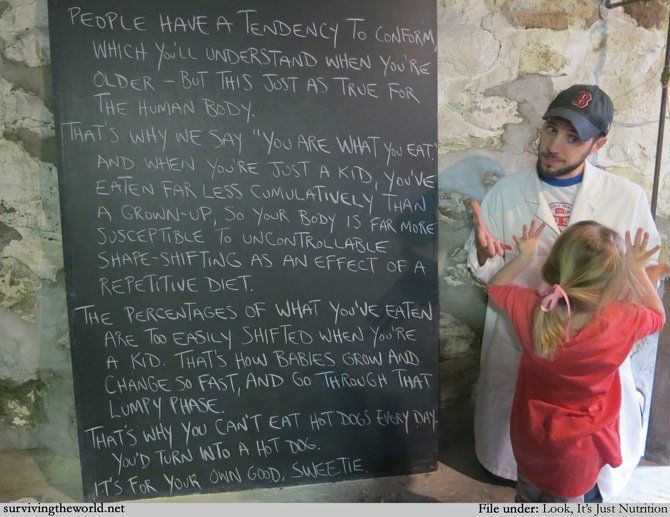 PEOPLE HAVE A TENDENCY TO CONFORM,
WHICH YOU'LL UNDERSTAND WHEN YOU'RE
OLDER – BUT THIS JUST AS TRUE FOR
THE HUMAN BODY.
THAT'S WHY WE SAY "YOU ARE WHAT YOU EAT."
AND WHEN YOU'RE JUST A KID, YOU'VE
EATEN FAR LESS CUMULATIVELY THAN
A GROWN-UP, SO YOUR BODY IS FAR MORE
SUSCEPTIBLE TO UNCONTROLLABLE
SHAPE-SHIFTING AS AN EFFECT OF A
REPETITIVE DIET.
THE PERCENTAGES OF WHAT YOU'VE EATEN
ARE TOO EASILY SHIFTED WHEN YOU'RE
A KID. THAT'S HOW BABIES GROW AND
CHANGE SO FAST, AND GO THROUGH THAT
LUMPY PHASE.
THAT'S WHY YOU CAN'T EAT HOT DOGS EVERY DAY.
YOU'D TURN INTO A HOT DOG.
IT'S FOR YOUR OWN GOOD, SWEETIE.
B
survivingtheworld.net
File under: Look, It's Just Nutrition